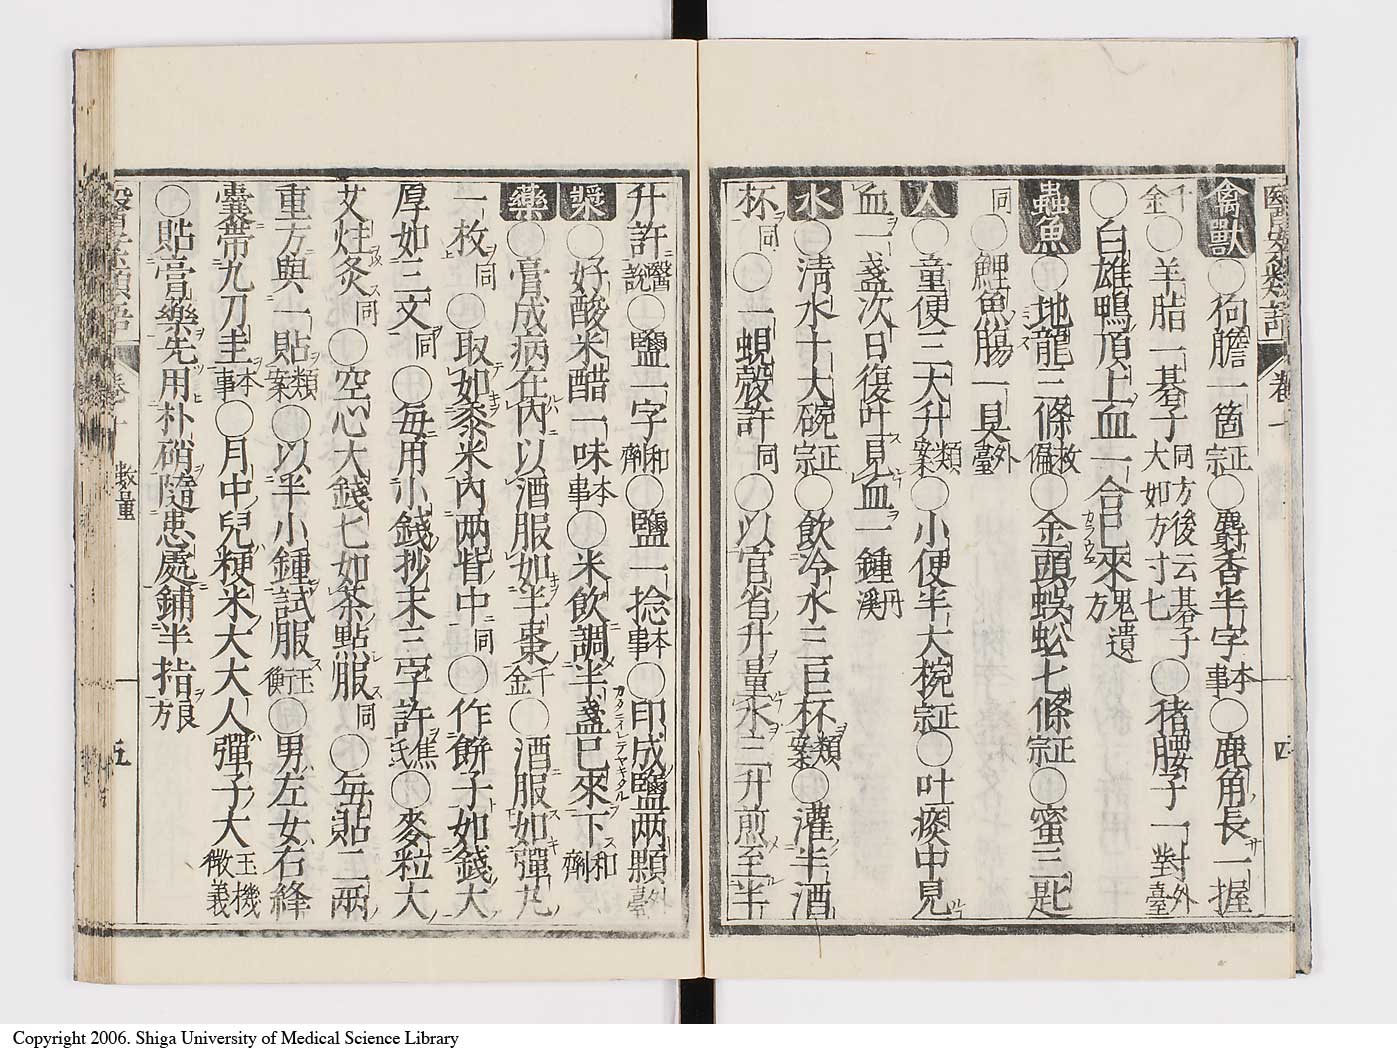 禽獸○狗膽一箇正宗○麝香半字本事○鹿角長一握
千金○羊脂一碁子同方後云碁子大如方寸匕○猪腰子一對外臺
○白雄鴨頂上血一合已來鬼遺方
蟲魚○地龍三條救偏○金頭蜈蚣七條正宗○蜜三匙
同○鯉魚腸一具外臺
人○童便三大升類案○小便半大椀正宗○吐痰中見
血一盞次日復吐見血一鍾丹溪
水○清水十大碗正宗○飲冷水三巨杯類案○灌半酒
杯同○一蜆殼許同○以官省升量水三升煎至半
升許醫說○鹽一字和劑○鹽一捻本事○印成鹽兩顆外臺
漿○好酸米醋一味本事○米飲調半盞已來下和劑
藥○膏成病在內以酒服如半棗千金○酒服如彈丸
一枚同○取如黍米內兩眥中同○作餅子如錢大
厚如二文同○每用小錢抄末三字許焦氏○麥粒大
艾炷灸同○空心大錢七如茶點服同○每貼二兩
重方與一貼類案○以半小鍾試服玉衡○男左女右絳
囊帶九刀圭本事○月中兒粳米大大人彈子大玉機微義
○貼膏藥先用朴硝隨患處鋪半指良方
數量
五
四
Copyright 2006. Shiga University of Medical Science Library